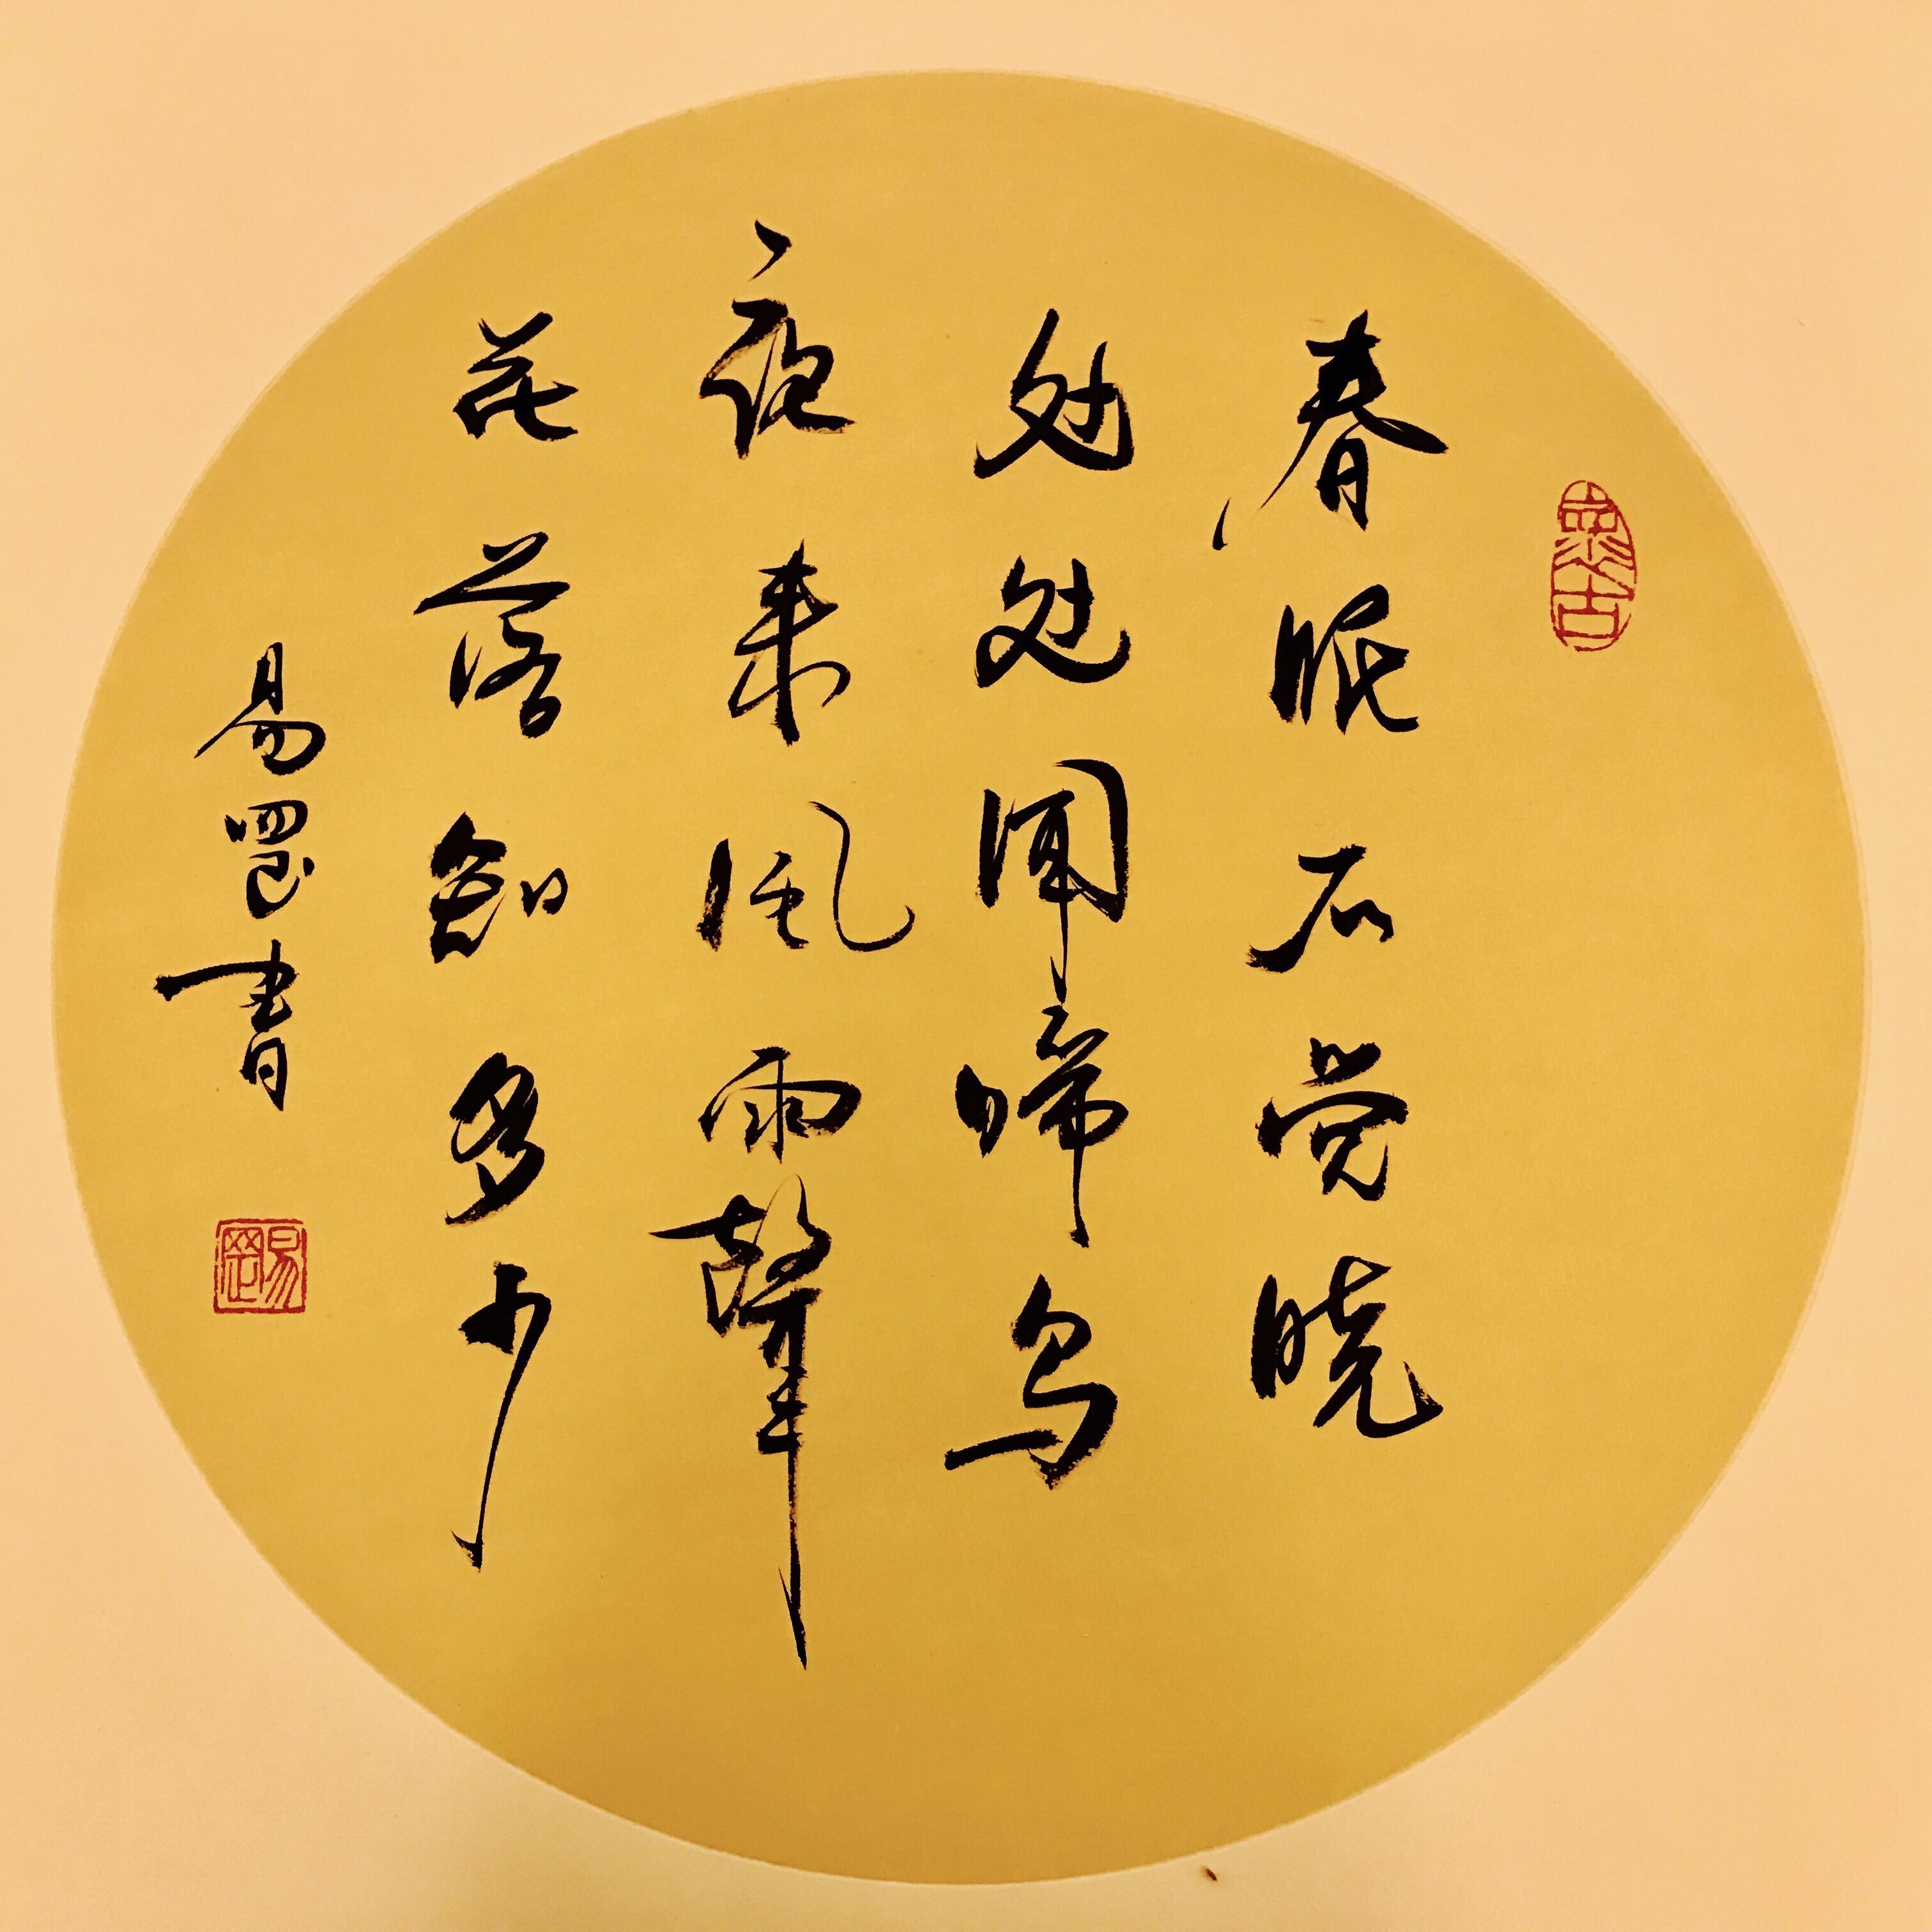 春眠不觉晓
处处闻啼鸟
夜来风雨聲
花落知多少
易罡書
易罡